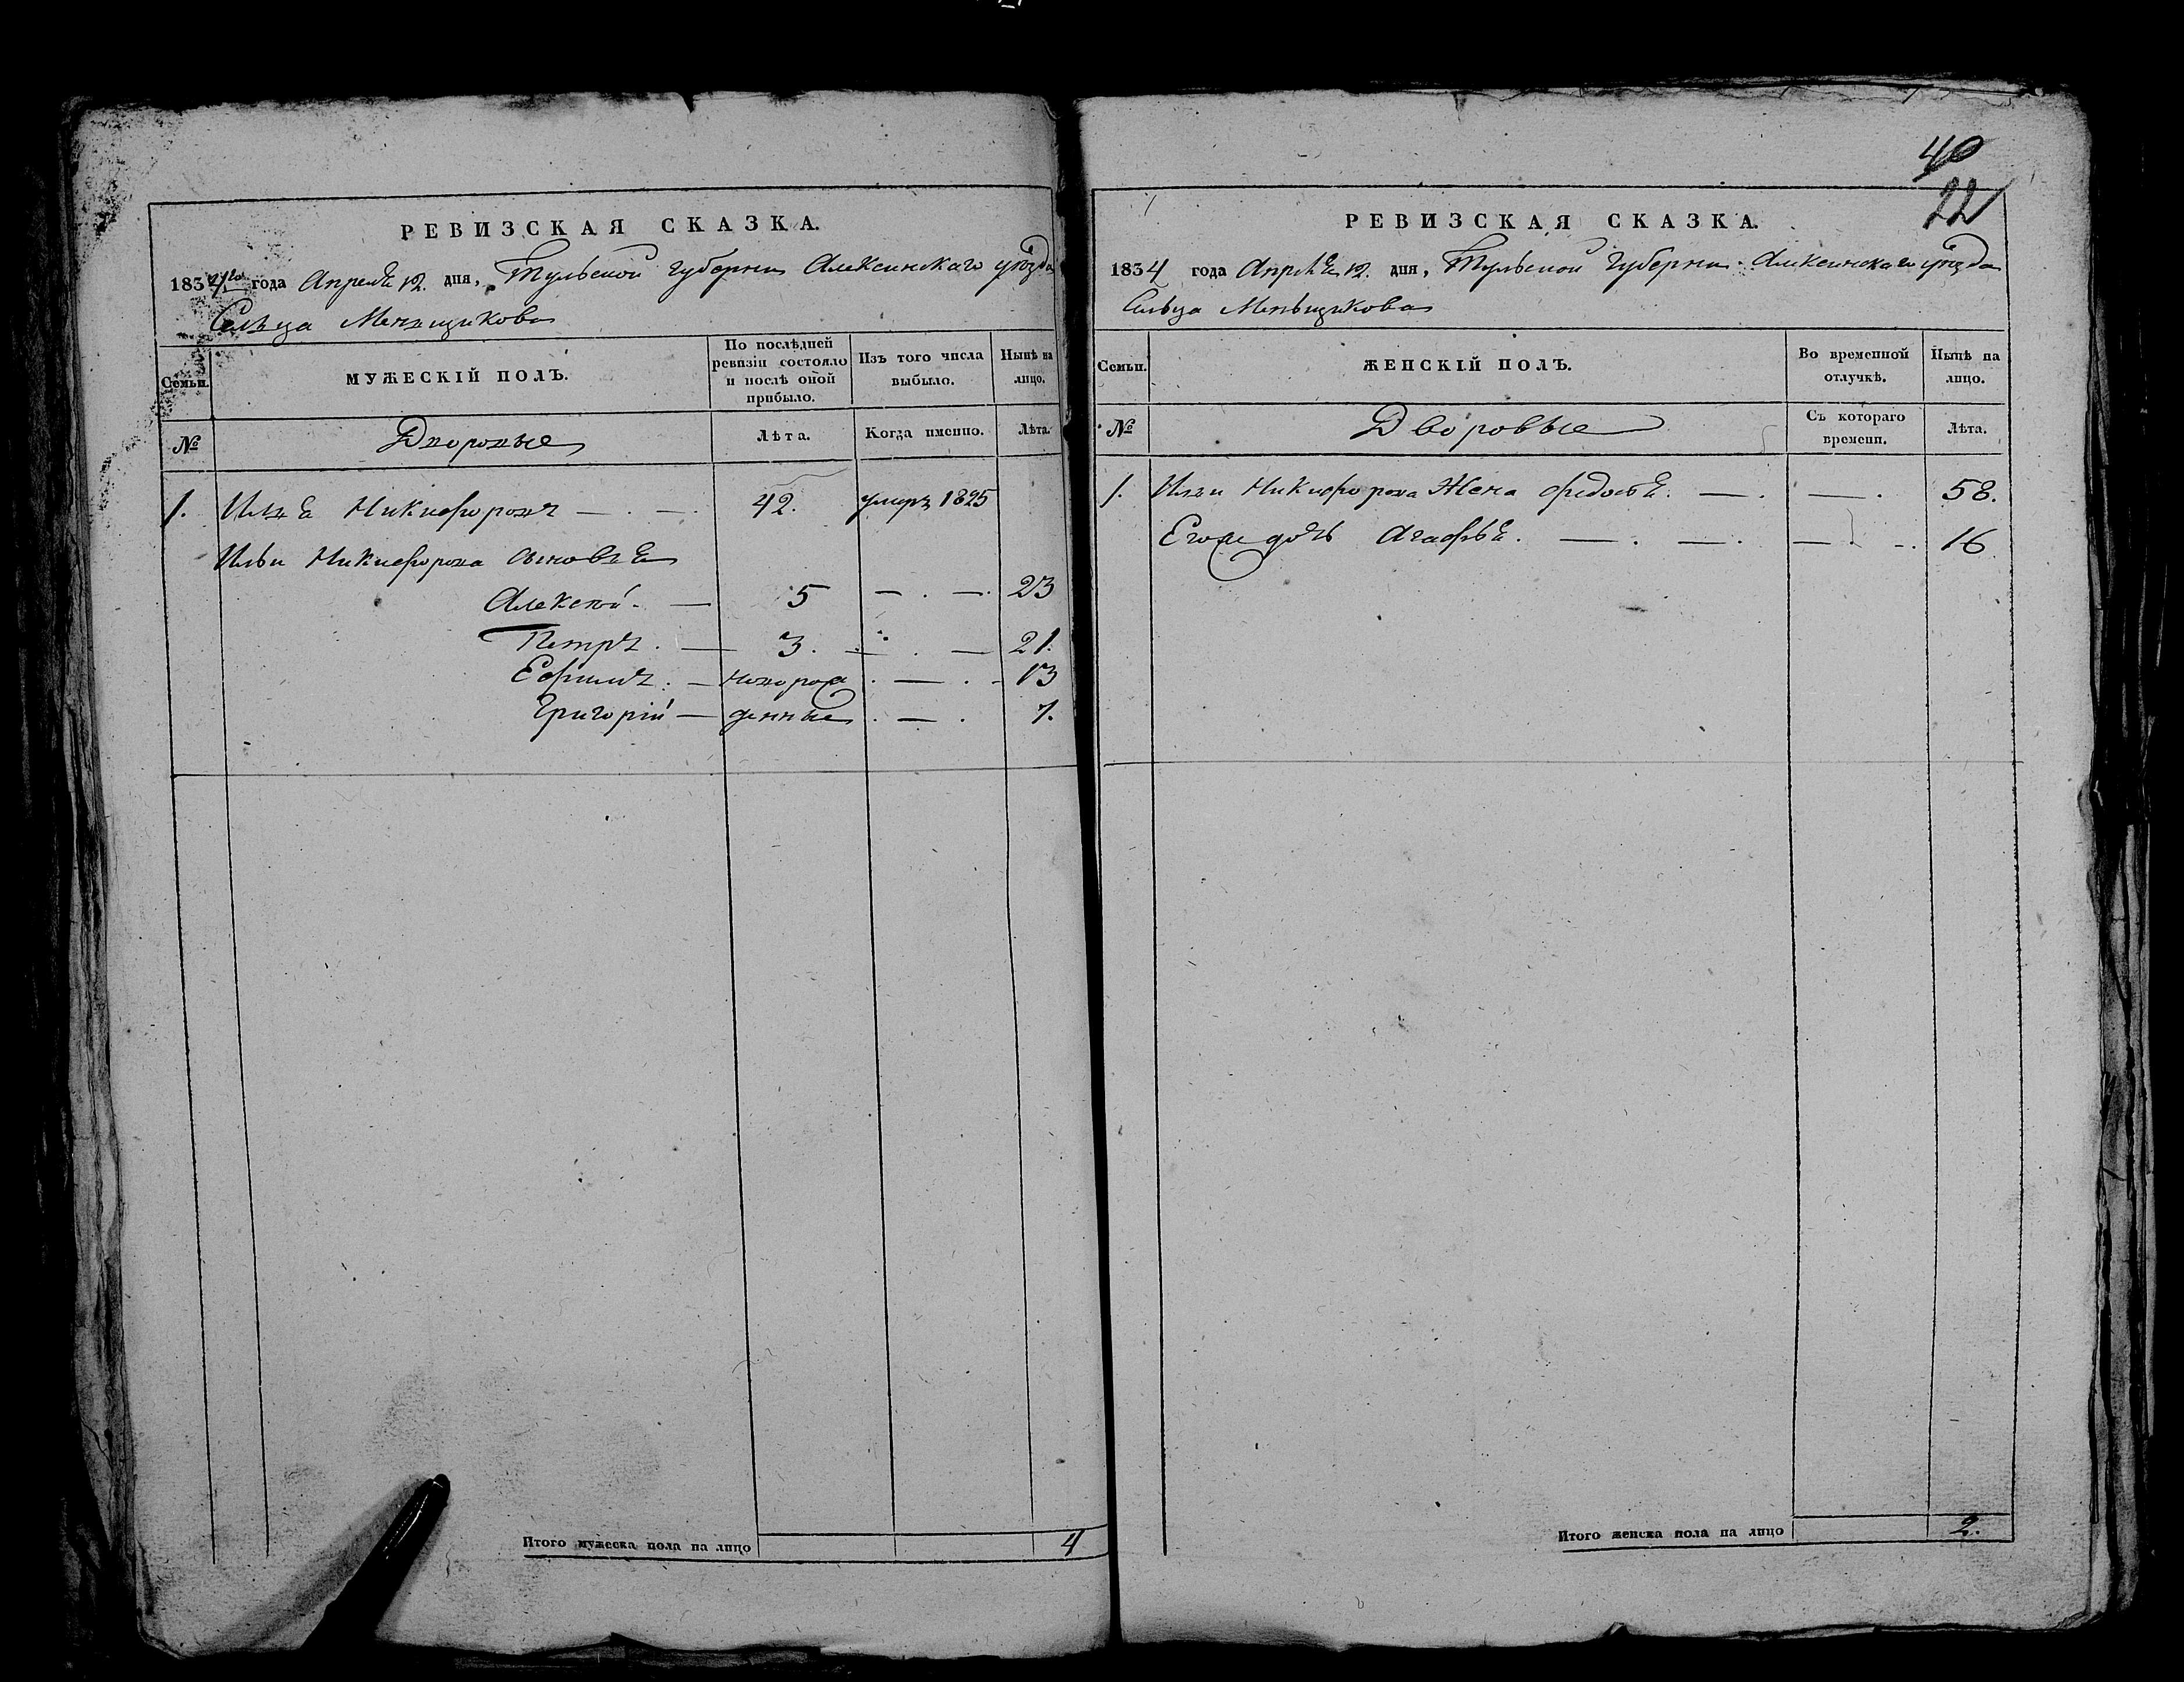 РЕВИЗСКАЯ СКАЗКА.
1834го года Апреля 12. дня, Тульской губернии Алексинскаго уѣзда
Сельца Меньщикова
Семьи.
МУЖЕСКІЙ ПОЛЪ.
По послѣдней ревизіи состояло и послѣ оной прибыло.
Изъ того числа выбыло.
Нынѣ на лицо.
№
Дворовые
Лѣта.
Когда именно.
Лѣта.
1. Илья Никифоровъ — . — . 42. умеръ 1825
Ильи Никифорова сыновья
Алексѣй. — 5 — . — . 23
Петръ . — 3. — . — 21.
Ефимъ . — новорож . — . - 13
Григорій — денные . — . 7.
Итого мужеска пола на лицо 4
40
22
РЕВИЗСКАЯ СКАЗКА.
1834 года Апреля 12. дня, Тульской Губернии Алексинскаго уѣзда
Сельца Меньщикова
Семьи.
ЖЕНСКІЙ ПОЛЪ.
Во временной отлучкѣ.
Нынѣ на лицо.
№
Дворовые
Съ котораго времени.
Лѣта.
1. Ильи Никифорова Жена Федосья. — . — . 58.
Егоже дочь Агафья. — . — . — . - . 16
Итого женска пола на лицо 2.